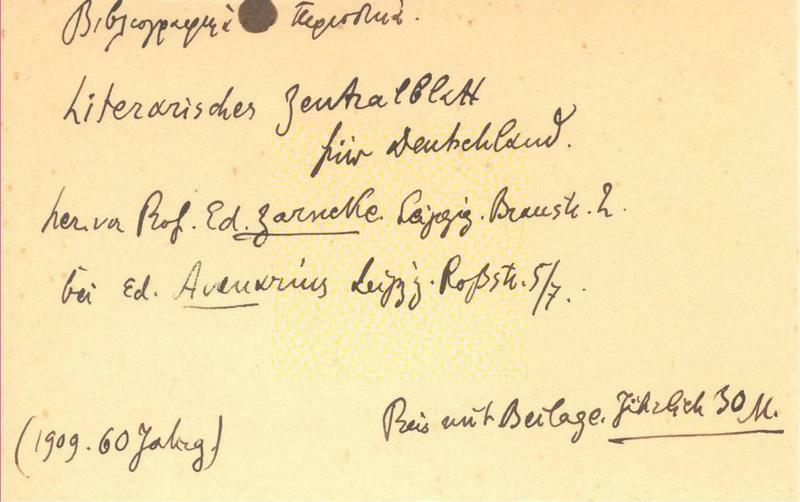 Βιβλιογραφικά περιοδικά.
Literarisches Zentralblatt
für Deutschland.
her. von Prof. Ed. Zarncke. Leipzig. Braustr. 2.
bei Ed. Avenarius Leipzig. Roßstr. 5/7.
Preis mit Beilage. Jährlich 30 M.
(1909. 60 Jahrg.)